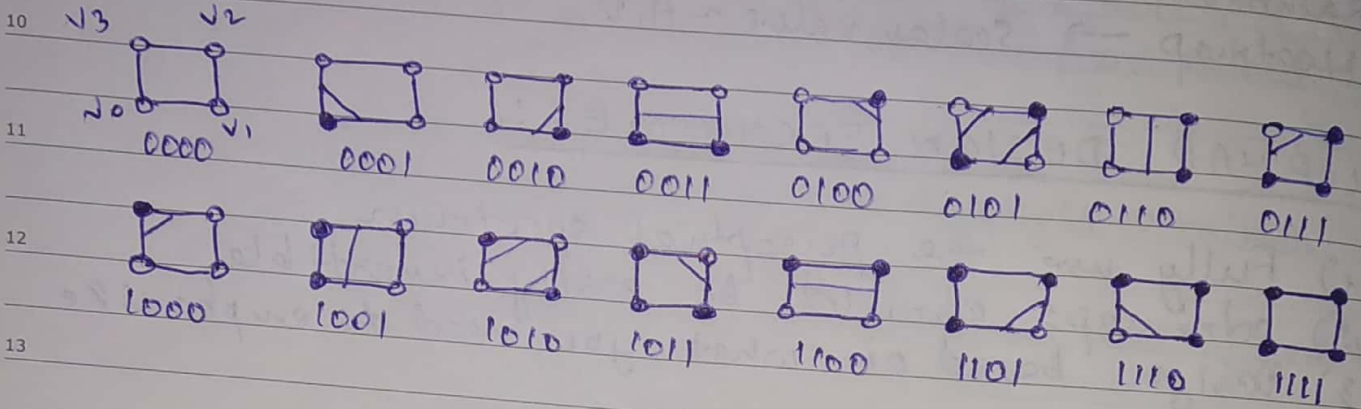 10
V3 V2
V0 V1
11
0000 0001 0010 0011 0100 0101 0110 0111
12
1000 1001 1010 1011 1100 1101 1110 1111
13